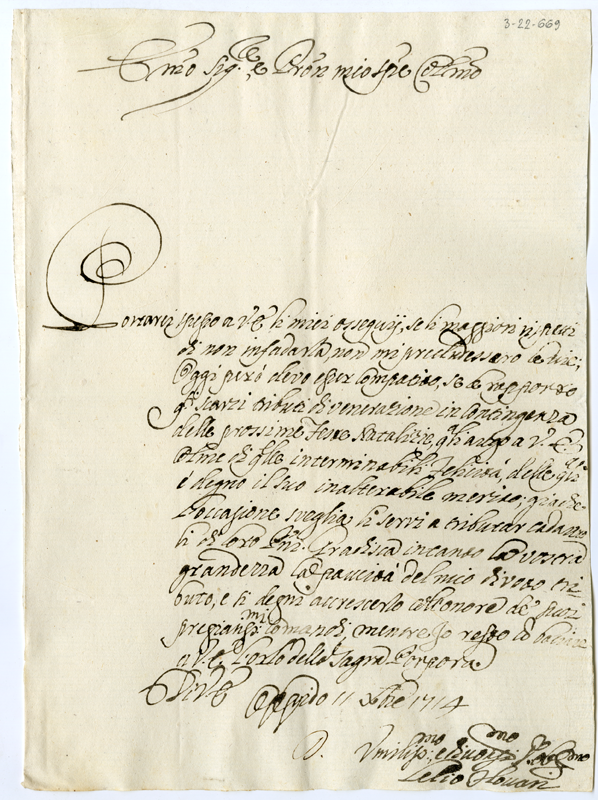 3-22-669
Emo Sig.re e Pron mio Sre Colmo
Portarei spesso a V.E. li miei ossequij, se li maggiori rispetti
di non infadarla, non mi precludessero le vie;
Oggi però devo esser compatito, se le rapporto
q.ti scarsi tributi di venerazione in contingenza
delle prossime Feste Natalizie, auguro a V.E.
di q.lle interminabili felicità, delle q.li
è degno il suo inalterabile merito; giache
l'occasione sveglia li servi a tributar
li di loro Pni. Gradisca intanto la vostra
grandezza la paucità del mio divoto tri
buto, e si degni accrescerlo coll'onore de suoi
pregiatis.mi comandi; mentre Io resto a baciare
a V.E. l'orlo della Sagra Porpora
Di V.E.
Oppido 11 Xbre 1714
D. Umiliss.mo e divotis.mo
Lelio